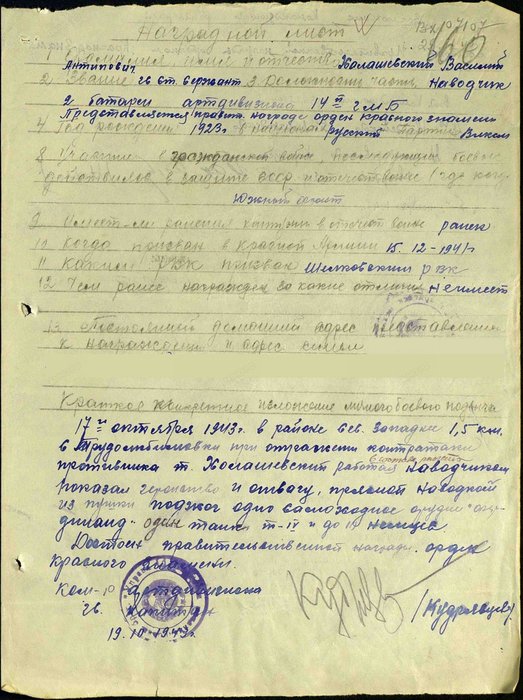 Наградной лист
1 Фамилия, имя и отчество Халашевский Василий
Антипович
2. Звание гв. ст. сержант 3 Должность, часть Наводчик
2 батареи артдивизиона 14й гМБ
Представляется к правит. награде орден Красного знамени
4 Год рождения 1923 г. 5 национал. русский Партийн. Влксм
8 Участие в гражданской войне, последующих боевых
действиях в защите СССР и отечествен. войне (где когда)
Южный фронт
9 Имеет-ли ранения контузии в отечест войне ранен
10 Когда призван в Красной Армии 15.12-1941 г
11 Каким РВК призван Шелковским РВК
12 Чем ранее награжден за какие отличия Не имеет
13. Постоянной домашний адрес представляемого
к награждению и адрес семьи
Краткое конкретное изложение личного боевого подвига
17го октября 1943 г. в районе сев. западнее 1,5 км.
с Трудолюбимовки при отражении контратаки
противника т. Халашевский работая Наводчиком
показал геройство и отвагу, прямой наводкой
из пушки поджог одно самоходное орудие "Фер-
динанд" один танк Т-IV и до 10 немцев
Достоин правительственной награды орден
Красного Знамени.
Ком-р артдивизиона
гв. капитан
/Кудрявцев/
19.10.1943 г.